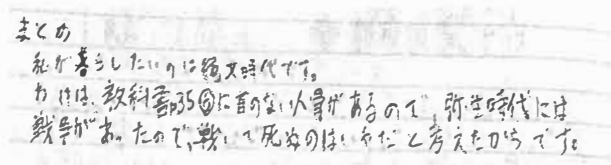 まとめ
私が暮らしたいのは縄文時代です。
わけは、教科書35⑥に首のない人骨があるので、弥生時代には
戦争があったので、戦って死ぬのはいやだと考えたからです。